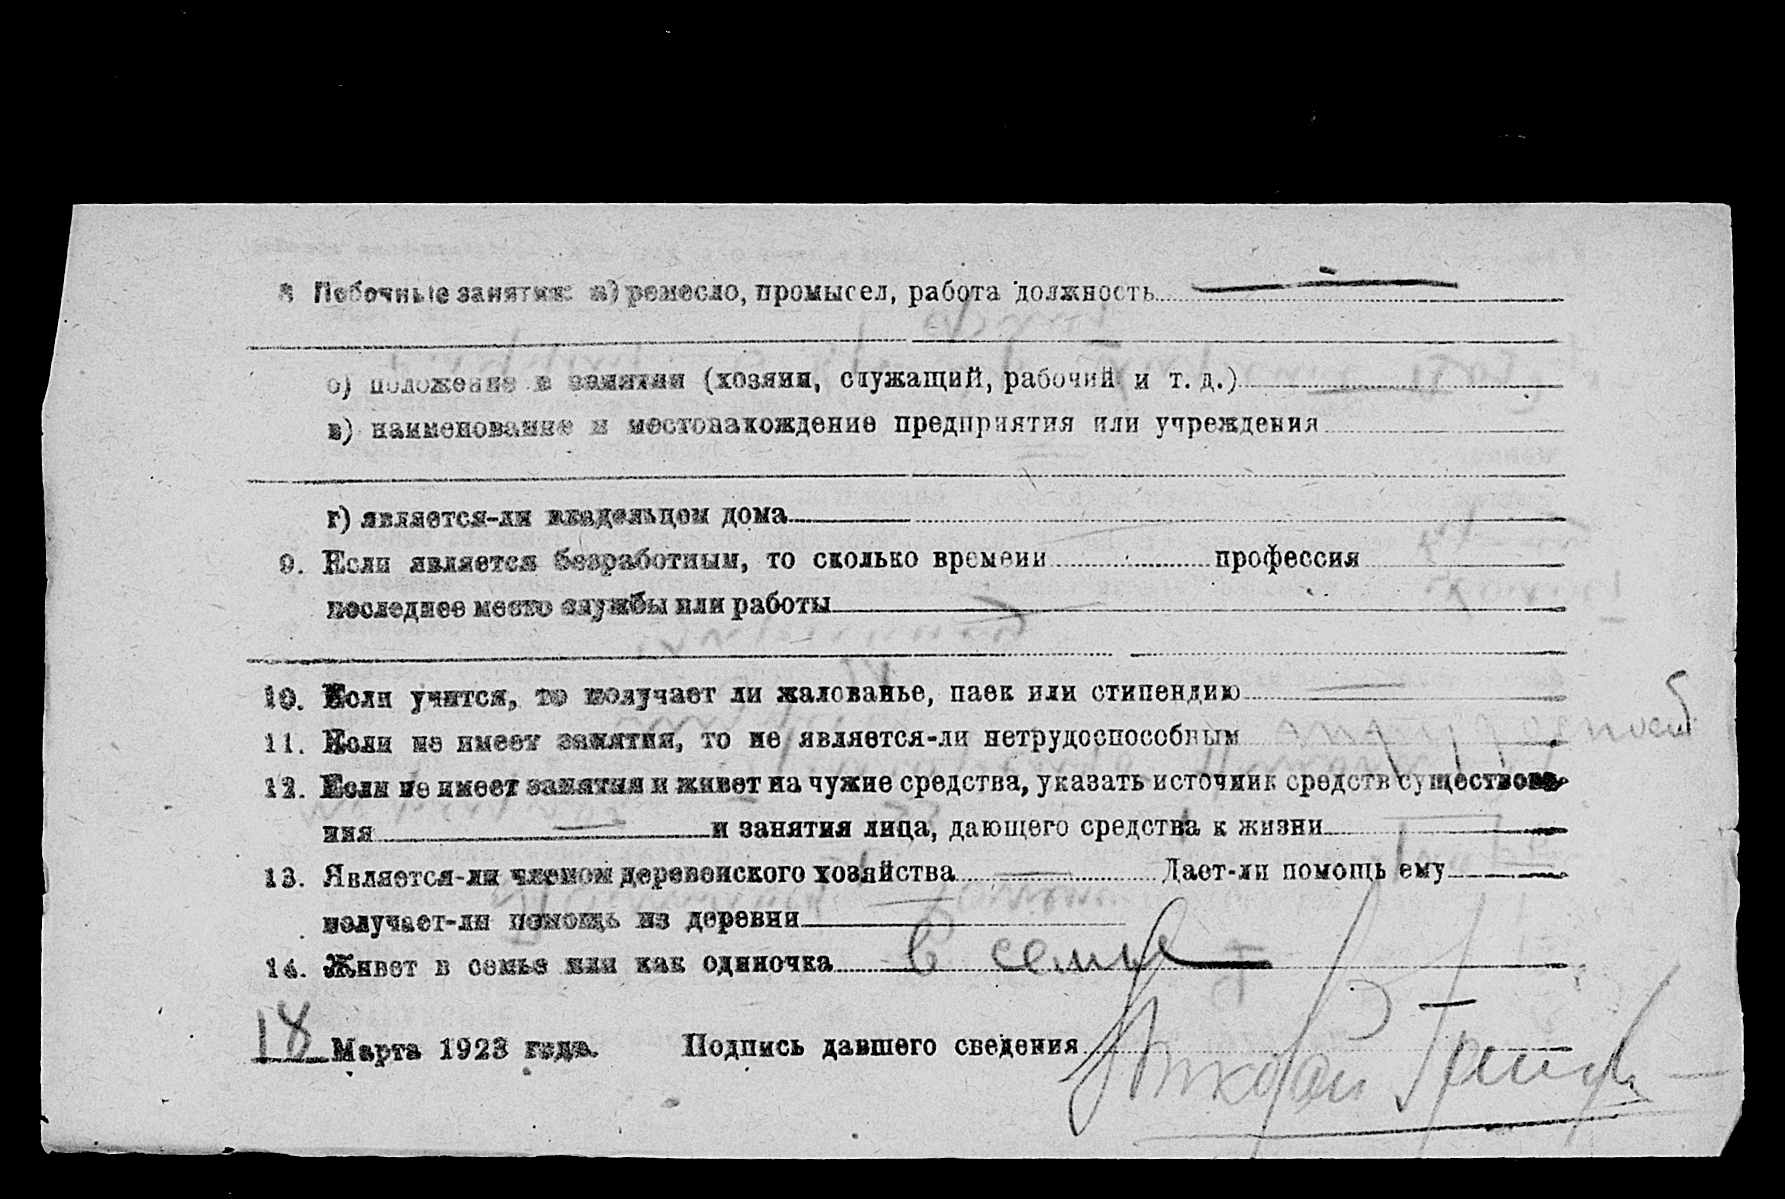 8 Побочные занятия: а) ремесло, промысел, работа должность
б) положение в занятии (хозяин, служащий, рабочий и т. д.)
в) наименование и местонахождение предприятия или учреждения
г) является-ли владельцем дома
9. Если является безработным, то сколько времени профессия
последнее место службы или работы
10. Если учится, то получает ли жалованье, паек или стипендию
11. Если не имеет занятия, то не является-ли нетрудоспособным
12. Если не имеет занятия и живет на чужие средства, указать источник средств существова-
ния и занятия лица, дающего средства к жизни
13. Является-ли членом деревенского хозяйства Дает-ли помощь ему
получает-ли помощь из деревни
14. Живет в семье или как одиночка в семье
18 Марта 1923 года. Подпись давшего сведения Николай